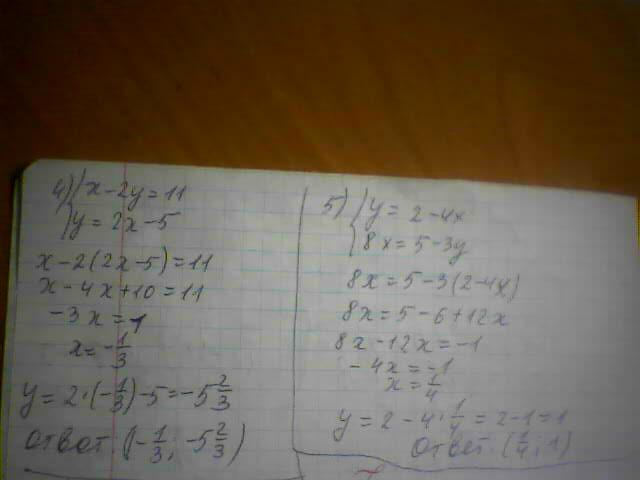 4) { x-2y=11
y=2x-5
x-2(2x-5)=11
x-4x+10=11
-3x=1
x=-1/3
y=2·(-1/3)-5=-5 2/3
ответ: (-1/3; -5 2/3)
5) { y=2-4x
8x=5-3y
8x=5-3(2-4x)
8x=5-6+12x
8x-12x=-1
-4x=-1
x=1/4
y=2-4·1/4=2-1=1
ответ: (1/4; 1)